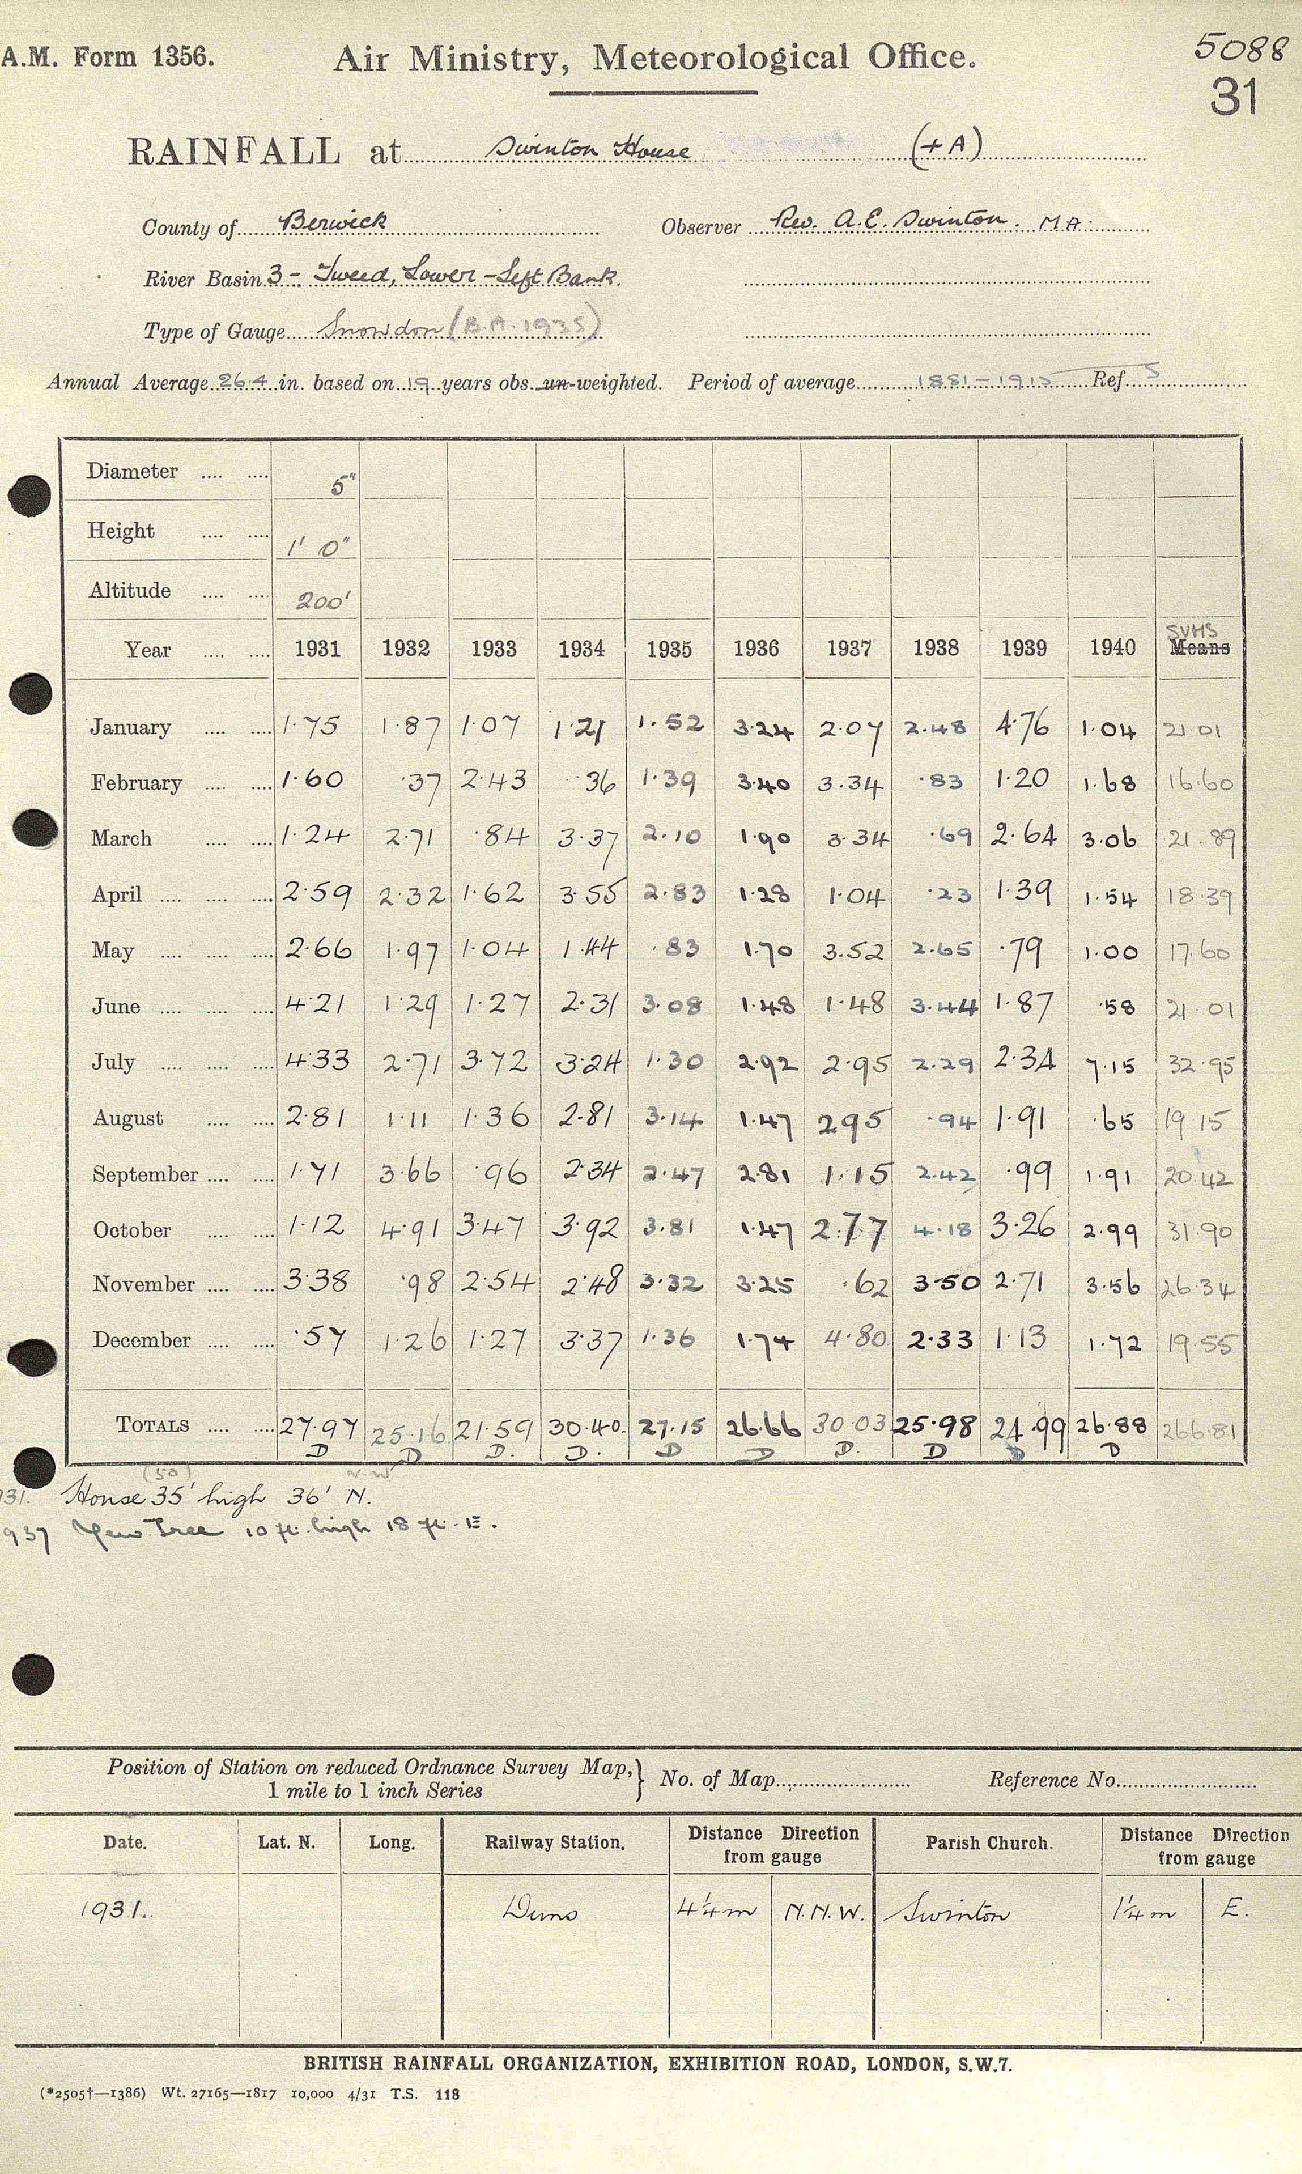 A.M. Form 1356. Air Ministry, Meteorological Office. 5088
31
RAINFALL at Swinton House (+A)
County of Berwick Observer Rev. A.E. Swinton. MA.
River Basin 3 - Tweed, Lower - Left Bank
Type of Gauge Snowdon (B.A. 1935)
Annual Average 26.4 in. based on 19 years obs. un-weighted. Period of average 1881-1915 Ref. 5
Diameter .... .... 5"
Height .... .... 1' 0"
Altitude .... .... 200'
SUMS
Year .... .... 1931 1932 1933 1934 1935 1936 1937 1938 1939 1940 Means
January .... .... 1.75 1.87 1.07 1.21 1.52 3.24 2.07 2.48 4.76 1.04 21.01
February .... .... 1.60 .37 2.43 .36 1.39 3.40 3.34 .83 1.20 1.68 16.60
March .... .... 1.24 2.71 .84 3.37 2.10 1.90 3.34 .69 2.64 3.06 21.89
April .... .... .... 2.59 2.32 1.62 3.55 2.83 1.28 1.04 .23 1.39 1.54 18.39
May .... .... .... 2.66 1.97 1.04 1.44 .83 1.70 3.52 2.65 .79 1.00 17.60
June .... .... .... 4.21 1.29 1.27 2.31 3.08 1.48 1.48 3.44 1.87 .58 21.01
July .... .... .... 4.33 2.71 3.72 3.24 1.30 2.92 2.95 2.29 2.34 7.15 32.95
August .... .... 2.81 1.11 1.36 2.81 3.14 1.47 2.95 .94 1.91 .65 19.15
September .... .... 1.71 3.66 .96 2.34 2.47 2.81 1.15 2.42 .99 1.91 20.42
October .... .... 1.12 4.91 3.47 3.92 3.81 1.47 2.77 4.18 3.26 2.99 31.90
November .... .... 3.38 .98 2.54 2.48 3.32 3.25 .62 3.50 2.71 3.56 26.34
December .... .... .57 1.26 1.27 3.37 1.36 1.74 4.80 2.33 1.13 1.72 19.55
TOTALS .... .... 27.97 25.16 21.59 30.40 27.15 26.66 30.03 25.98 24.99 26.88 266.81
D D D. D. D D D. D D D
(50) N.W
931. House 35' high 36' N.
937 Yew Tree 10 ft. high 18 ft. E.
Position of Station on reduced Ordnance Survey Map, } No. of Map Reference No.
1 mile to 1 inch Series
Date. Lat. N. Long. Railway Station. Distance Direction from gauge Parish Church. Distance Direction from gauge
1931. Duns 4¼m N.N.W. Swinton 1¼m E.
BRITISH RAINFALL ORGANIZATION, EXHIBITION ROAD, LONDON, S.W.7.
(*2505†—1386) Wt. 27165—1817 10,000 4/31 T.S. 118